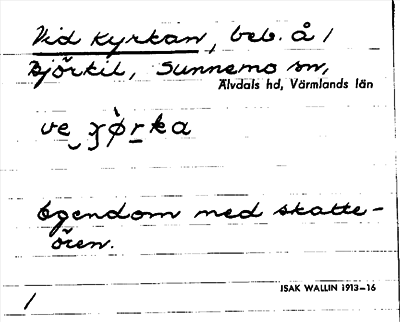 Vid kyrkan, beb. å 1
Björkil, Sunnemo sn,
Älvdals hd, Värmlands län
ve χø̀rka
Egendom med skatte-
ören.
ISAK WALLIN 1913–16
1